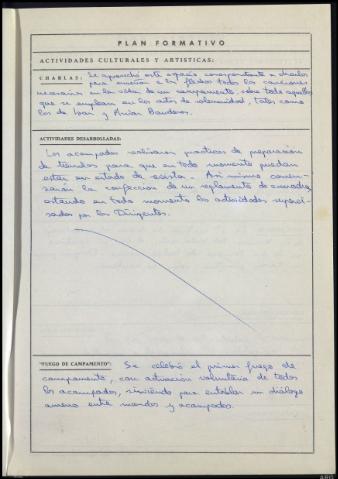 PLAN FORMATIVO
ACTIVIDADES CULTURALES Y ARTISTICAS:
CHARLAS: Se aprovechó este espacio correspondiente a charlas
para enseñar a los flechas todas las canciones
necesarias en la vida de un campamento, sobre todo aquellas
que se emplean en los actos de solemnidad, tales como
los de Izar y Arriar Banderas.
ACTIVIDADES DESARROLLADAS:
Los acampados realizaron prácticas de preparación
de tiendas para que en todo momento puedan
estar en estado de revista. Asi mismo comen-
zarón la confección de un reglamento de escuadra,
estando en todo momento las actividades supervi-
sadas por los Dirigentes.
"FUEGO DE CAMPAMENTO": Se celebró el primer fuego de
campamento, con actuación voluntaria de todos
los acampados, sirviendo para entablar un diálogo
ameno entre mandos y acampados.